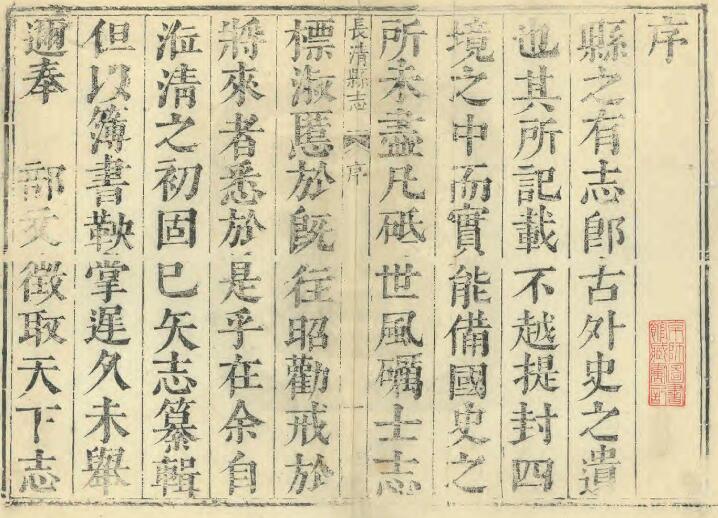 序
縣之有志郎古外史之遺
也其所記載不越提封四
境之中而實能備國史之
所未盡凡砥世風礪士志
長清縣志 序 一
標淑慝於既往昭勸戒於
將來者悉於是乎在余自
涖清之初固已矢志纂輯
但以簿書鞅掌遲久未舉
邇奉 部文徵取天下志
京師圖書館藏書記